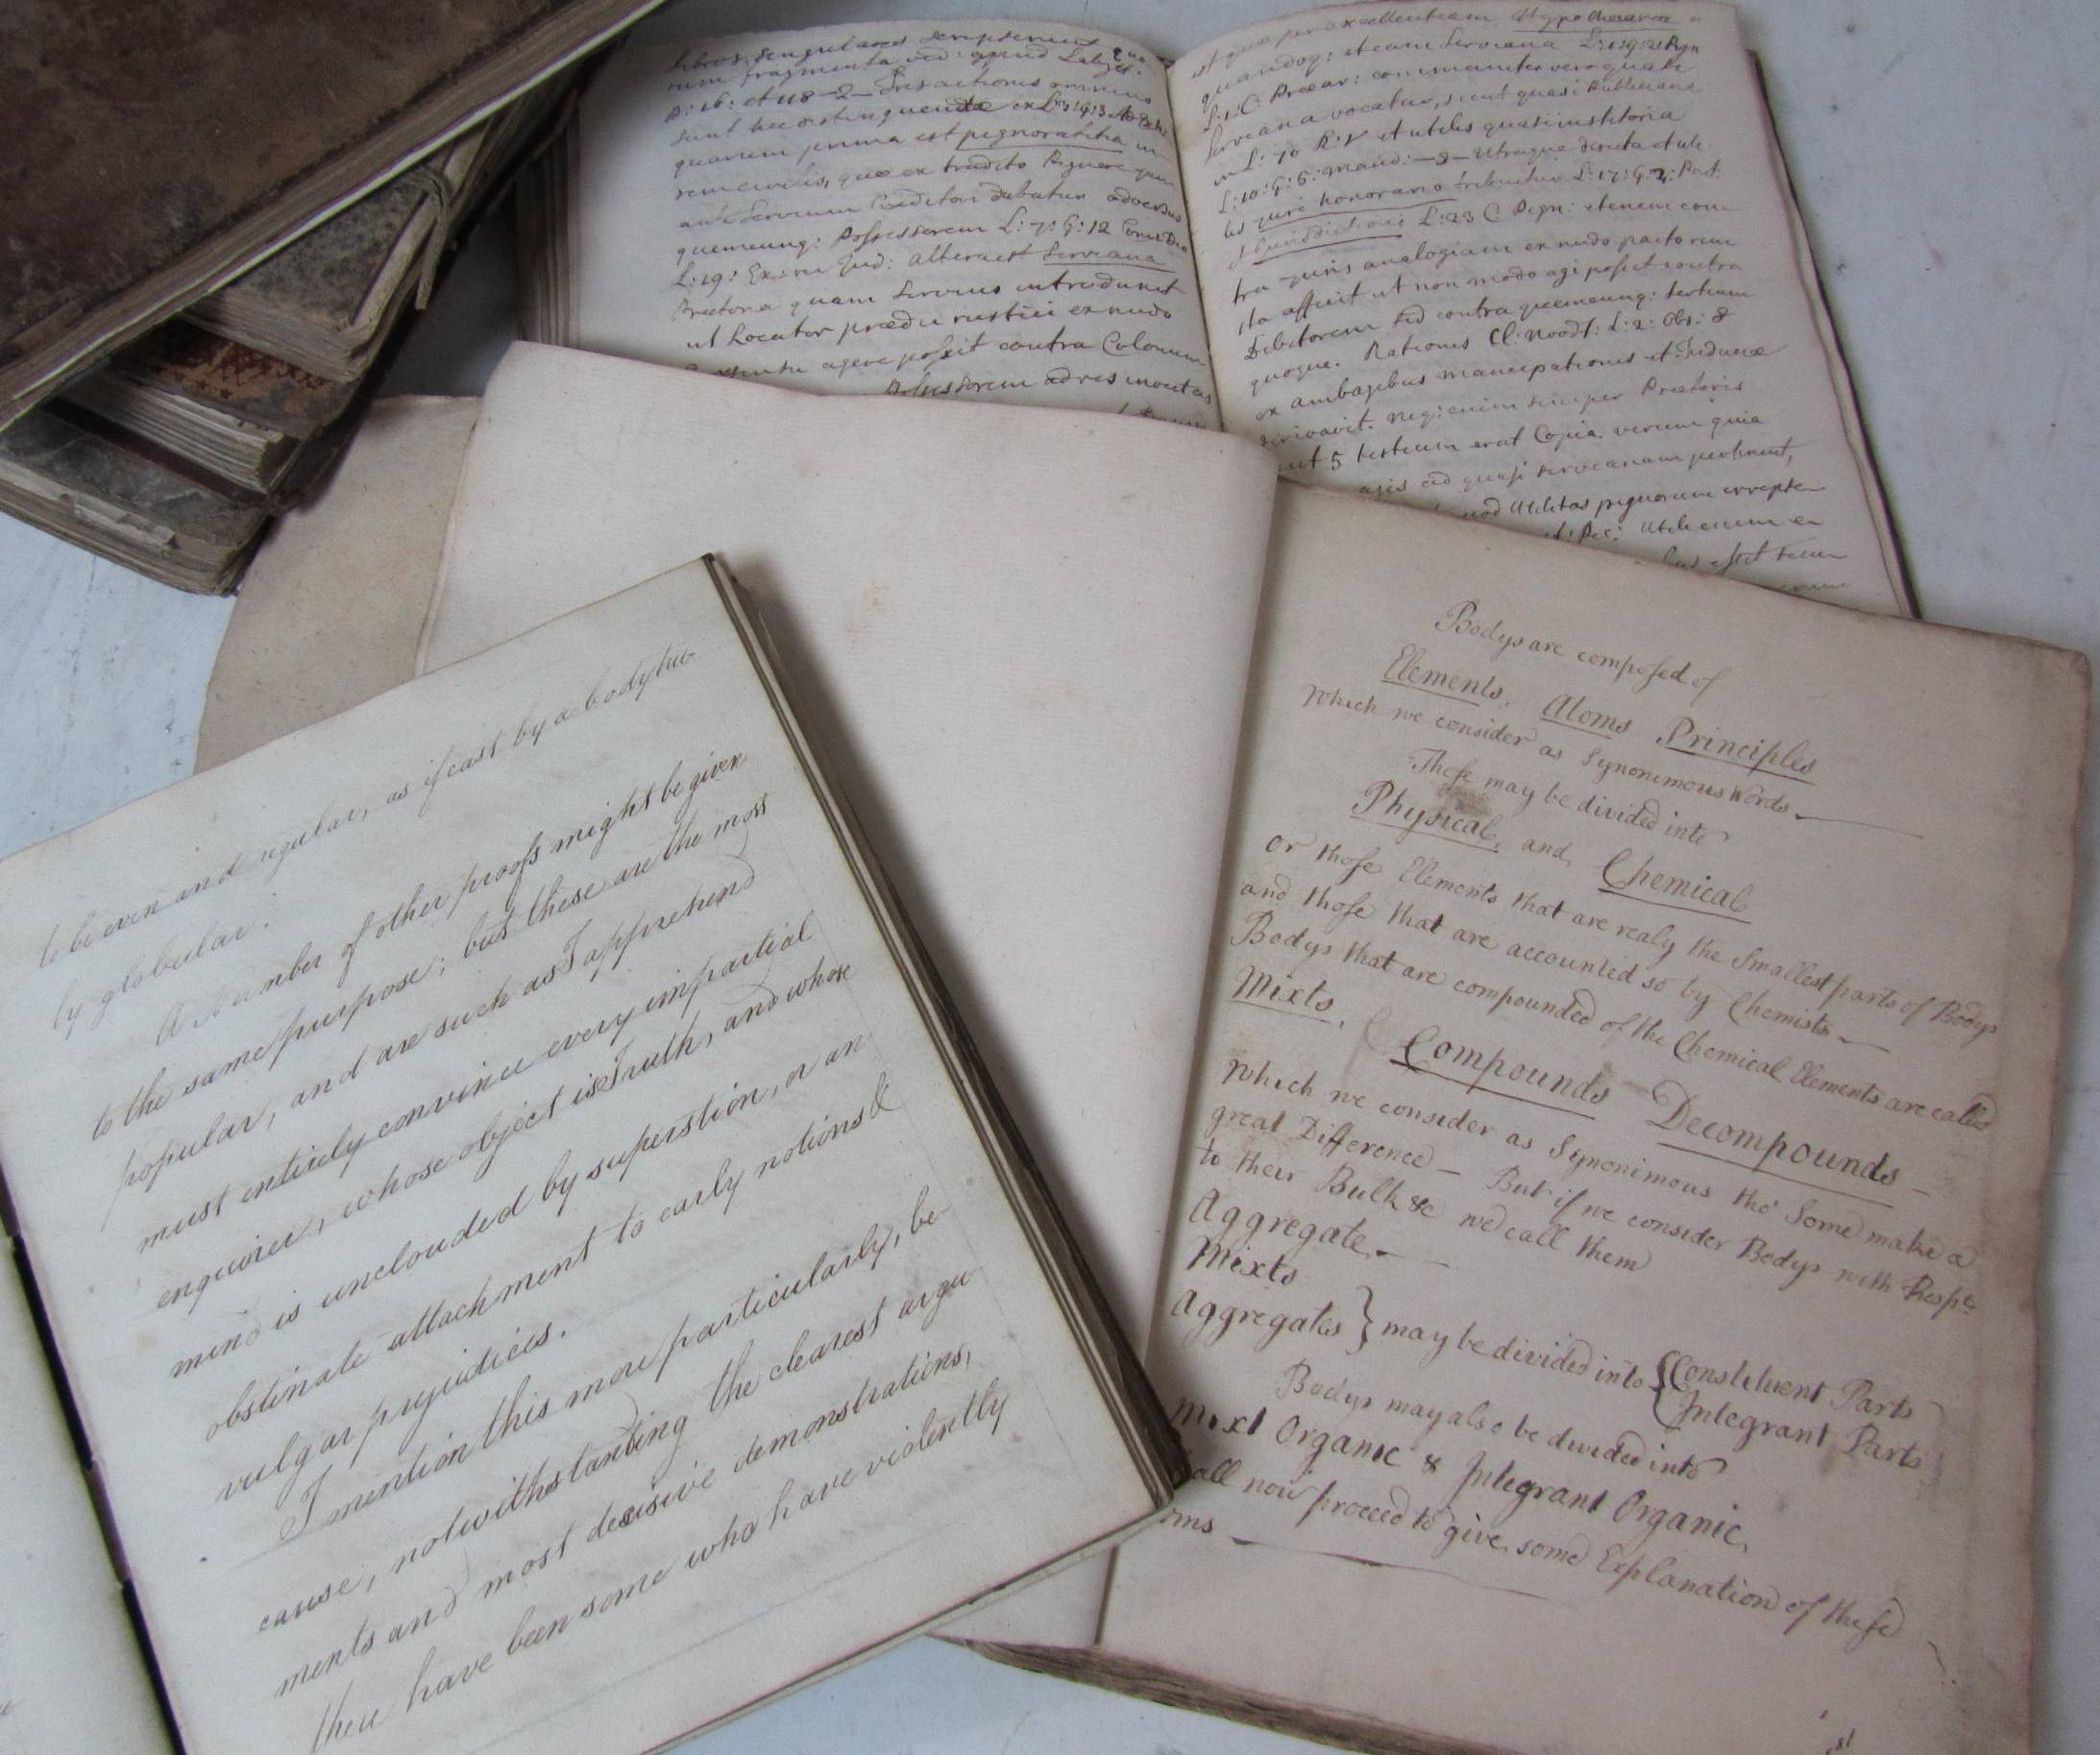 libros singulares
rum fragmenta
D: 16: et 118 — 2 — Tres actiones omnino
sunt hic distinguendæ ex
quarum prima est pignoratitia in
rem civilis, quæ ex tradito Pignore
ante Servium Creditori dabatur adversus
quemcunq: Possessorem L: 7: §: 12
L: 19: Ex: rei Jud: altera est Serviana
Prætoria quam Servius introduxit
ut Locator prædii rustici ex nudo
agere possit contra Colonum
Possessorem ad res invectas
est quæ per excellentiam Hypothecaria
quandoq: etiam Serviana
L: 1: C: Precar: communiter vero quasi
Serviana vocatur, sicut quasi Publiciana
in L: 70 R: V et utilis quasi institoria
L: 10: §: 5: Mand: — 3 — Utraque directa et uti
lis jure honorario tribuitur L: 17: §: 2: Pact:
Jurisdictionis L: 23 C Pign: etenim con
tra juris analogiam ex nudo pacto rem
ita afficit ut non modo agi possit contra
Debitorem sed contra quemcunq: tertium
quoque. Rationes Cl: Noodt: L: 2: Obs: 8
ex ambagibus mancipationis et fiduciæ
derivavit. Neq: enim semper Prætoris
ut 5 testium erat Copia. verum quia
ad quasi servianam pertinent,
Utilitas pignorum
Bodys are composed of
Elements, Atoms Principles
Which we consider as Synonimous Words.
These may be divided into
Physical, and, Chemical
or those Elements that are realy the Smallest parts of Bodys
and those that are accounted so by Chemists —
Bodys that are compounded of the Chemical Elements are called
Mixts,
Compounds — Decompounds —
Which we consider as Synonimous tho' Some make a
great Difference — But if we consider Bodys with Respt.
to their Bulk &c we call them
Aggregate. —
Mixts
Aggregates } may be divided into { Constituent Parts
Integrant Parts
Bodys may also be divided into
Mixt Organic & Integrant Organic,
all now proceed to give some Explanation of these
rms —
to be even and regular, as if cast by a body tru
ly globular.
A Number of other proofs might be given
to the same purpose; but these are the most
popular, and are such as I apprehend
must entirely convince every impartial
enquirer, whose object is Truth, and whose
mind is unclouded by superstion, or an
obstinate attachment to early notions &
vulgar prejudices.
I mention this more particularly, be
cause, notwithstanding the clearest argu
ments and most decisive demonstrations,
there have been some who have violently